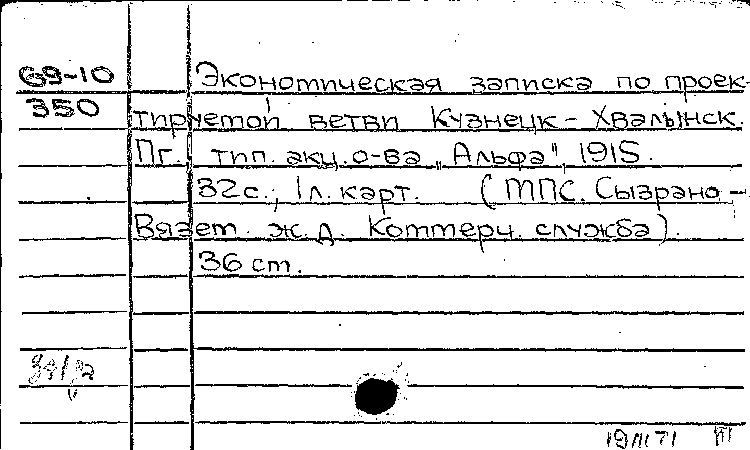 69-10
350
Экономическая записка по проек-
тируемой ветви Кузнецк - Хвалынск.
Пг., тип. акц. о-ва „Альфа", 1915.
32 с.; 1 л. карт. (МПС. Сызрано-
Вязем. ж. д. Коммерч. служба).
36 см.